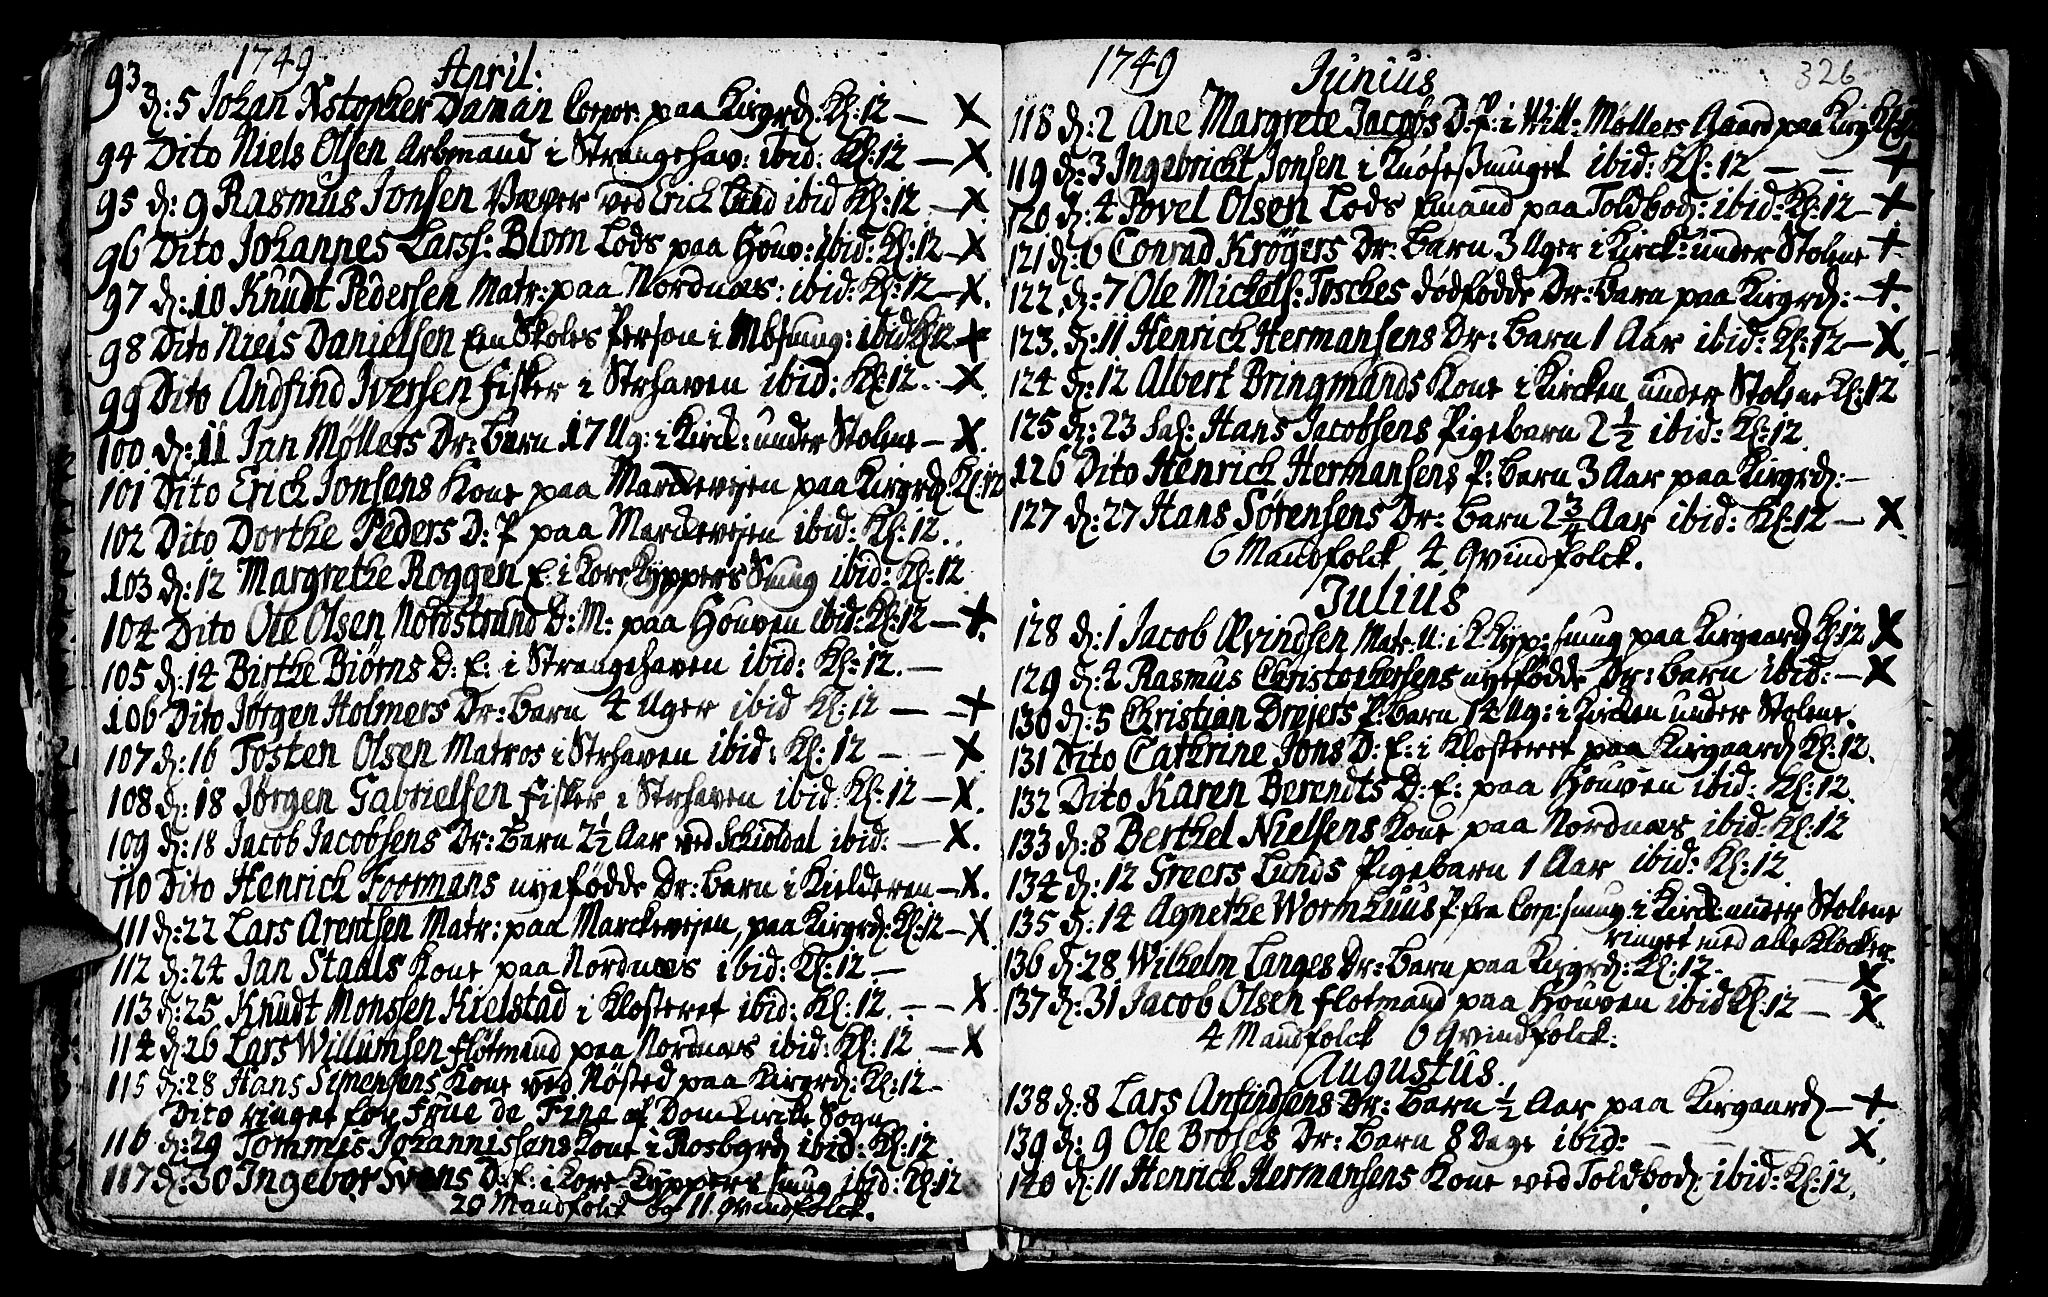 1749 April:
93 d: 5 Johan Xstopher Daman Corpor: paa Kirgrd: Kl: 12 — X
94 Dito Niels Olsen Arbmand i Strangehav: ibid: Kl: 12 — X.
95 d: 9 Rasmus Jonsen Væver ved Erick Lund ibid Kl: 12 — X
96 Dito Johannes Larss: Blom Lods paa Houv: ibid: Kl: 12 — X
97 d: 10 Knudt Pedersen Matr: paa Nordnæs: ibid: Kl: 12 — X.
98 Dito Niels Danielsen Em Skoles Person i smug: ibid Kl: 12 +
99 Dito Andfind Iversen Fisker i Strhaven ibid: Kl: 12 .. — X.
100 d: 11 Jan Møllers Dr: Barn 17 Ug: i Kirck: under Stolene — X.
101 Dito Erick Jonsens Kone paa Marckevejen paa Kirgrd: Kl: 12
102 Dito Dorthe Peders D: P paa Marckevejen ibid: Kl: 12 ..
103 d: 12 Margrethe Roggen E: i Korekyppers Smug ibid: Kl: 12
104 Dito Ole Olsen Nordstrand D: M: paa Houven ibid: Kl: 12 — +.
105 d: 14 Birthe Biørns D: E: i Strangehaven ibid: Kl: 12. —
106 Dito Jørgen Holmers Dr: Barn 4 Uger ibid Kl: 12 — — +
107 d: 16 Tosten Olsen Matros i Strhaven ibid: Kl: 12 — — X
108 d: 18 Jørgen Gabrielsen Fisker i Strhaven ibid: Kl: 12 — X.
109 d: 18 Jacob Jacobsens Dr: Barn 2 1/2 Aar ved Schiøldal ibid: — X.
110 Dito Henrick Foormans nyefødde Dr: Barn i Kielderen — X.
111 d: 22 Lars Arentsen Matr: paa Marckevejen, paa Kirgrd: Kl: 12 — X.
112 d: 24 Jan Staals Kone paa Nordnæs ibid: Kl: 12 —
113 d: 25 Knudt Monssen Kielstad i Klosteret ibid: Kl: 12. — — X
114 d: 26 Lars Willumsen Flotmand paa Nordnæs ibid: Kl: 12 — X
115 d: 28 Hans Simensens Kone ved Nøsted paa Kirgrd: Kl: 12 —
Dito ringet for Frue de Fine af Domkirke Sogn.
116 d: 29 Tommes Johannissens Kone i Rosbgrd ibid: Kl: 12
117 d: 30 Ingebor Svens D: E: i Kore-Kyppers smug ibid: Kl: 12
20 Mandfolck og 11 Qvindfolck.
1749 Junius 326
118 d: 2 Ane Margrete Jacobs D: P: i Will: Møllers Gaard paa Kirg: Kl: 12
119 d: 3 Ingebricht Jonsen i Knøsesmuget ibid: Kl: 12 — — +
120 d: 4 Povel Olsen Lods Emand paa Toldbod: ibid: Kl: 12 — +
121 d: 6 Conrad Krøgers Dr: Barn 3 Uger i Kirck: under Stolene +
122 d: 7 Ole Michels: Tosches dødfødde Dr: Barn paa Kirgrd: — +.
123. d: 11 Henrick Hermansens Dr: Barn 1 Aar ibid: Kl: 12 — X.
124 d: 12 Albert Bringmands Kone i Kircken under Stolene Kl: 12
125 d: 23 Sal: Hans Jacobsens Pigebarn 2 1/2 ibid: Kl: 12.
126 Dito Henrick Hermansens P: Barn 3 Aar paa Kirgrd: —
127 d: 27 Hans Sørensens Dr: Barn 2 3/4 Aar ibid: Kl: 12 — X
6 Mandfolck 4 Qvindfolck.
Julius
128 d: 1 Jacob Øvindsen Matr: U: i Kkyp: smug paa Kirgaard Kl: 12 X
129 d: 2 Rasmus Christophersens nyefødde Dr: Barn ibid: — X
130 d: 5 Christian Drejers P: Barn 14 Ug: i Kircken under Stolene.
131 Dito Cathrine Jons D: E: i Klosteret paa Kirgaard Kl: 12.
132 Dito Karen Berendts D: E: paa Houven ibid: Kl: 12.
133 d: 8 Berthel Nielsens Kone paa Nordnæs ibid: Kl: 12
134 d: 12 Greers Lunds Pigebarn 1 Aar ibid: Kl: 12.
135 d: 14 Agnethe Wormhuus P. fra Corp: smug i Kirck: under Stolene
ringet med alle Klocker
136 d: 28 Wilhelm Langes Dr: Barn paa Kirgrd: Kl: 12 — — X
137 d: 31 Jacob Olsen Flotmand paa Houven ibid Kl: 12 — X.
4 Mandfolck 6 Qvindfolck:
Augustus
138 d: 8 Lars Anfindsens Dr: Barn 1/2 Aar paa Kirgaard — +
139 d: 9 Ole Broses Dr: Barn 8 Dage ibid: — — X.
140 d: 11 Henrick Hermansens Kone ved Toldbod: ibid: Kl: 12.